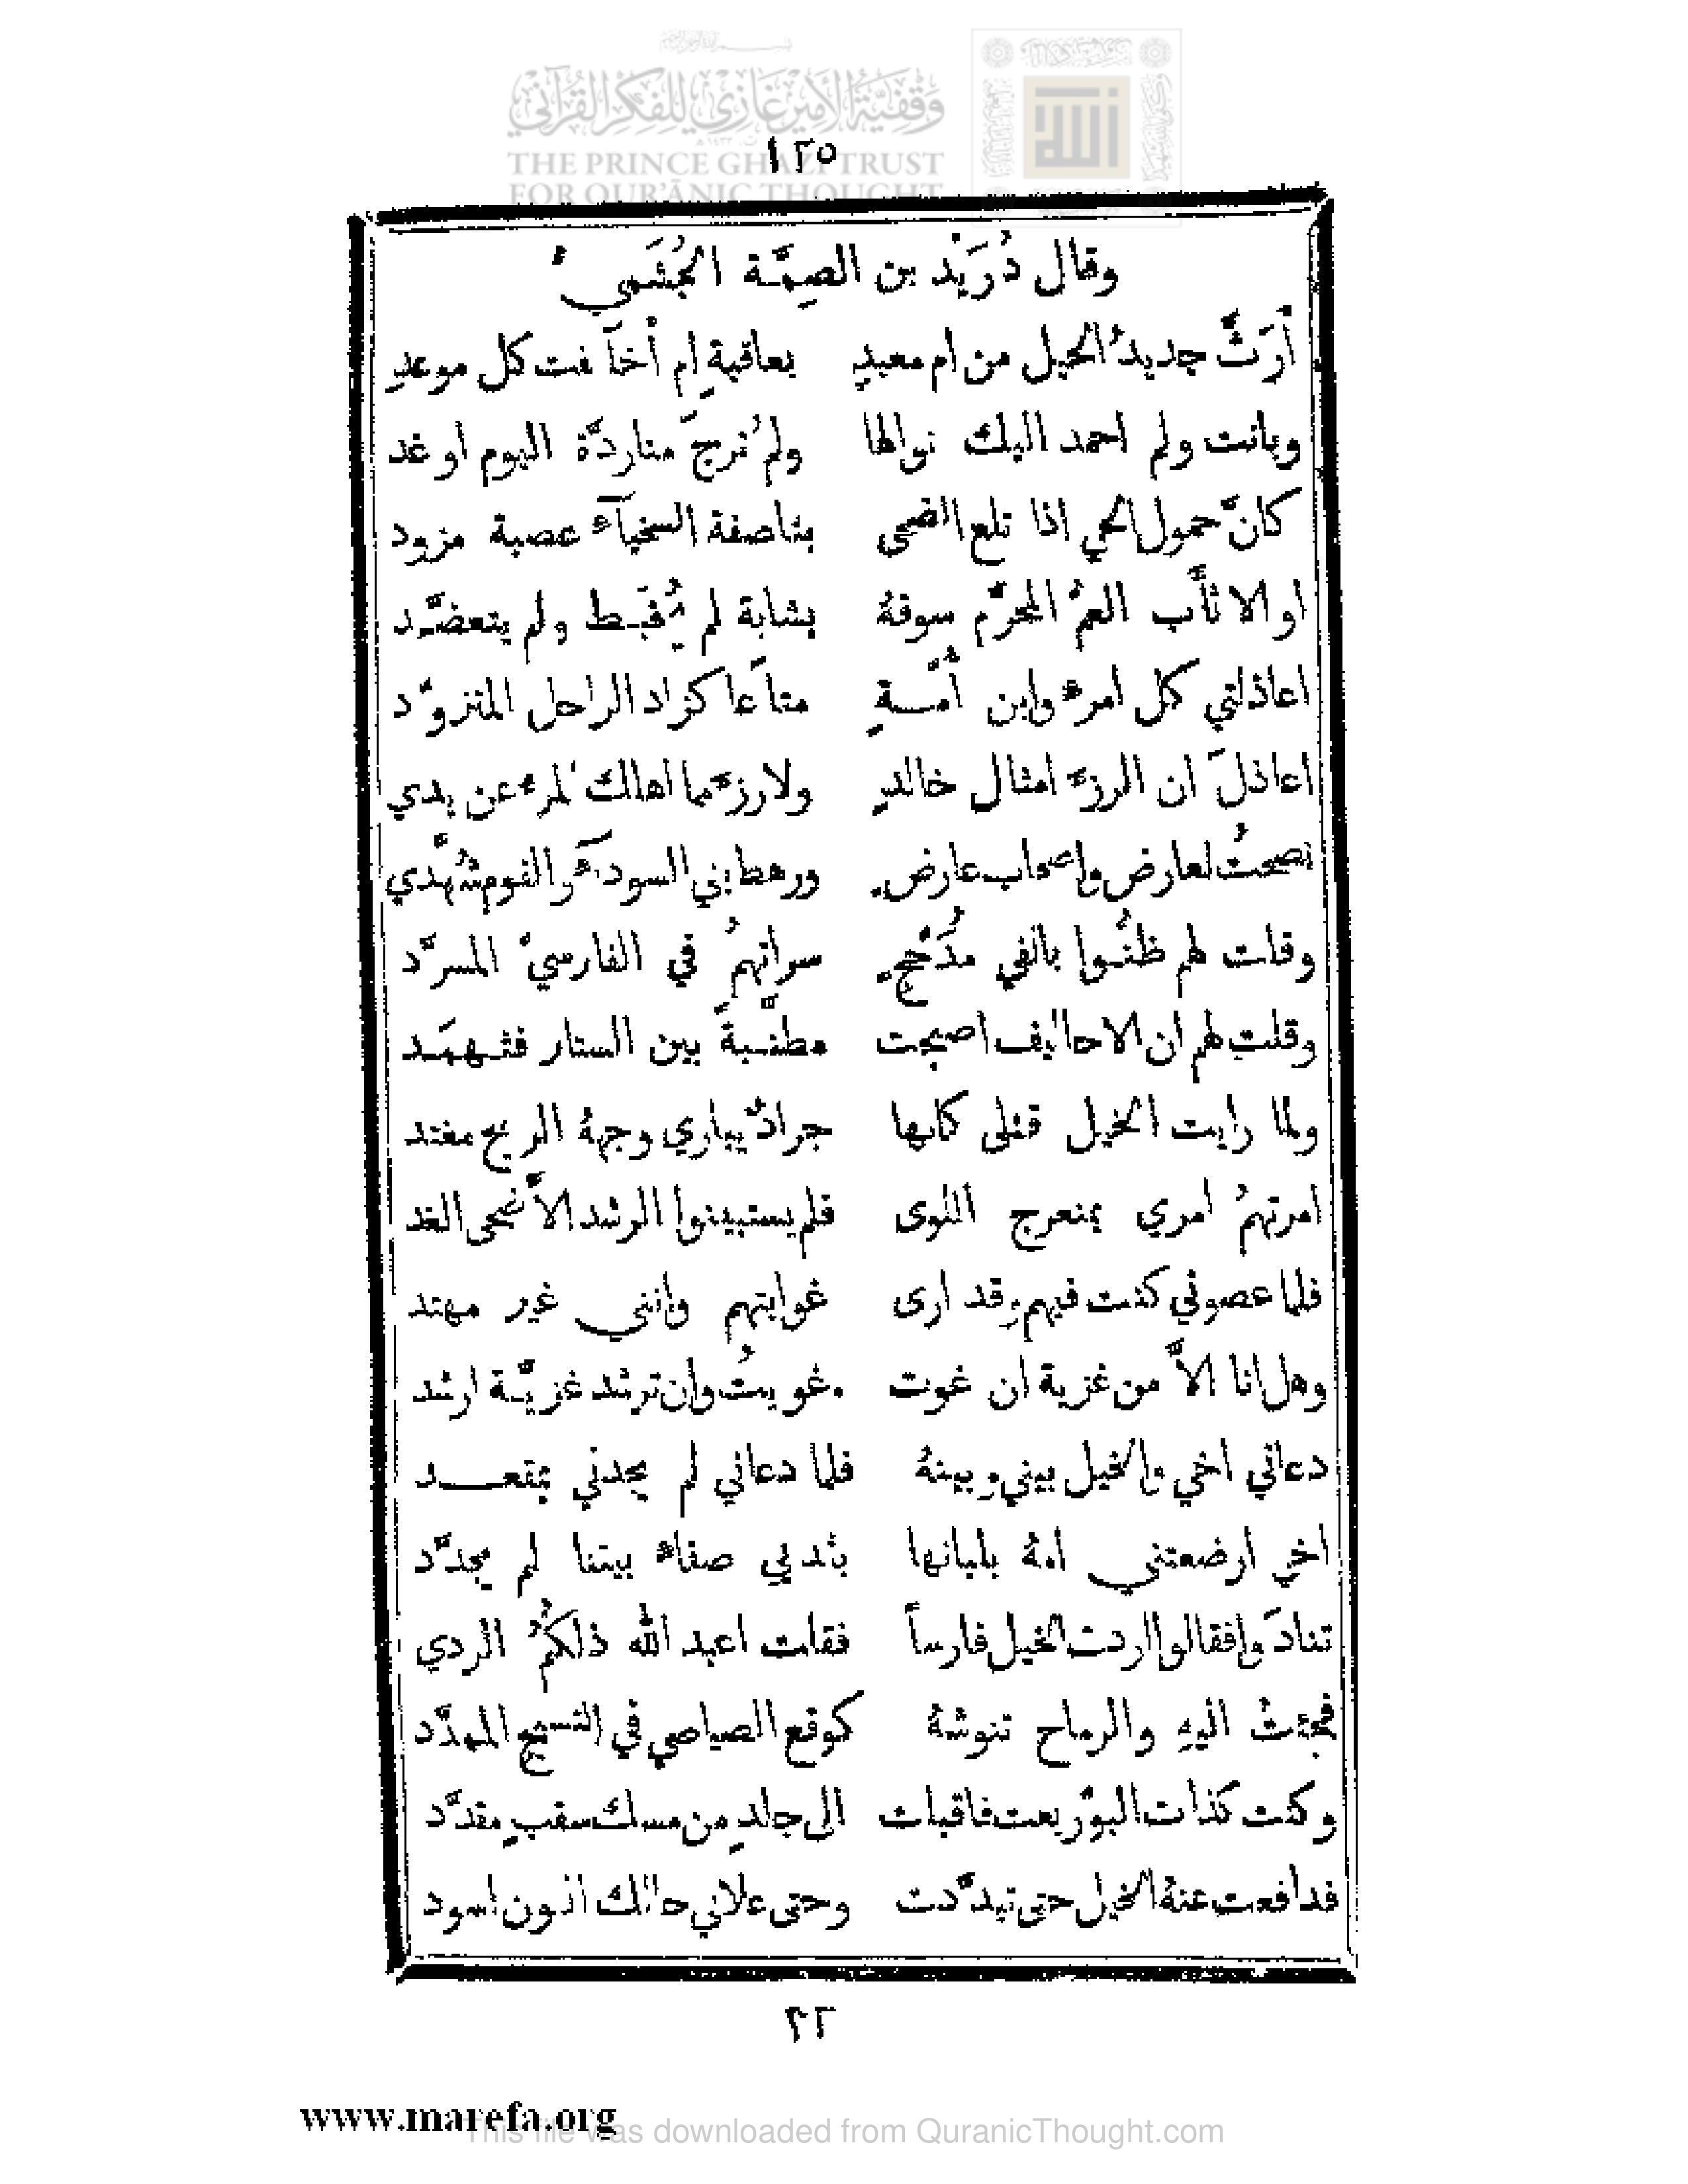 وقفية الأمير غازي للفكر القرآني
THE PRINCE GHAZI TRUST
FOR QUR'ĀNIC THOUGHT
١٢٥
وقال دُرَيْد بن الصِمَّة الجُشَمي
أَرَثَّ جديدُ الحبل من ام معبدٍ بعاقبةٍ ام أَخلَفت كل موعدِ
وبانت ولم احمد اليك نوالها ولم تُرجَ منا ردَّة اليوم او غد
كانَّ حمول الحي اذا تلع الضحى بناصفة السخيآء عصبة مزود
او الاثأَب العمُّ المحرَّم سوقهُ بشابة لم يُخبَط ولم يتعضَّد
اعاذلتي كل امرء وابن أُمّةٍ متاعا كزاد الراحل المتزوَّد
اعاذلَ ان الرزء امثال خالدٍ ولا رزء مما اهلك المرء عن يدي
نصحتُ لعارض واصحاب عارض ورهط بني السودآء والقوم شُهَّدي
وقلت لهم ظنُّوا بالفي مُدَجَّجٍ سراتهمُ في الفارسيّ المسرَّد
وقلت لهم ان الاحاليف اصبحت مطنّبةً بين الستار فثهمَد
ولما رايت الخيل قبلى كانها جرادٌ يباري وجهة الريح مغتد
امرتهمُ امري بمنعرج اللوى فلم يستبينوا الرشد الاَّ ضحى الغد
فلما عصوني كنت فيهم وقد ارى غوايتهم وانني غير مهتد
وهل انا الاَّ من غزية ان غوت غويتُ وان ترشد غزيَّة ارشد
دعاني اخي والخيل بيني وبينهُ فلما دعاني لم يجدني بقعدد
اخي ارضعتني امهُ بلبانها بثدي صفاء بيننا لم يجدَّد
تنادَوا فقالوا اردت الخيل فارساً فقلت اعبد الله ذلكمُ الردي
فجئتُ اليهِ والرماح تنوشهُ كوقع الصياصي في النسيج الممدَّد
وكنت كذات البوّ ريعت فاقبلت الى جلدٍ من مسك سقبٍ مقدَّد
فدافعت عنهُ الخيل حتى تبدَّدت وحتى علاني حالك اللون اسود
٣٢
www.marefa.org
This file was downloaded from QuranicThought.com